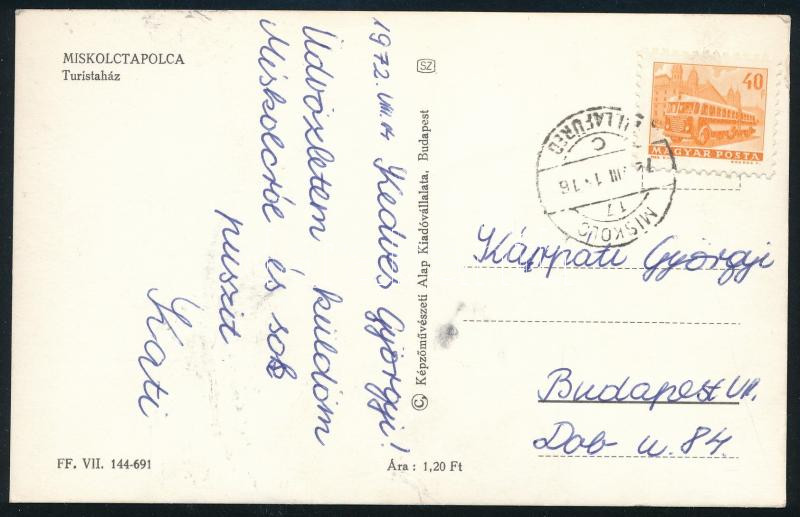 MISKOLCTAPOLCA
Turistaház
1972. VIII. 14
Kedves Györgyi!
Üdvözletem küldöm
Miskolcról és sok
puszit
Kati
FF. VII. 144-691
Ára : 1,20 Ft
SZ
© Képzőművészeti Alap Kiadóvállalata, Budapest
40
MAGYAR POSTA
LILLAFÜRED
C
17
MISKOLC
Kárpáti Györgyi
Budapest VII.
Dob u. 84.